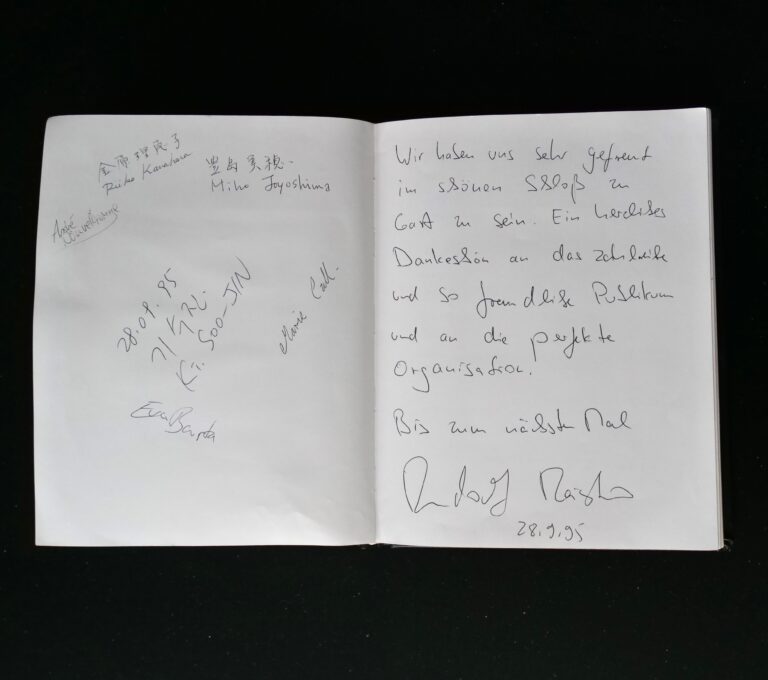 金原理恵子
Riiko Kanahara
豊島実穂.
Miho Toyoshima
28.09.95
기수진.
Ki. SOO-JIN
Marie
Eva
Wir haben uns sehr gefreut
im schönen Schloß zu
Gast zu sein. Ein herzliches
Dankeschön an das zahlreiche
und so freundliche Publikum
und an die perfekte
Organisation.
Bis zum nächsten Mal
Rudolf
28.9.95